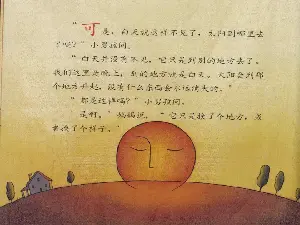 "可是，白天就这样不见了，太阳到哪里去
了呢？"小男孩问。
"白天并没有不见，它只是到别的地方去了。
我们这里是晚上，别的地方就是白天。太阳会到那
个地方升起，没有什么东西会永远消失的。"
"都是这样吗？"小男孩问。
"是啊，"妈妈说，"它只是换了个地方，或
者换了个样子。"